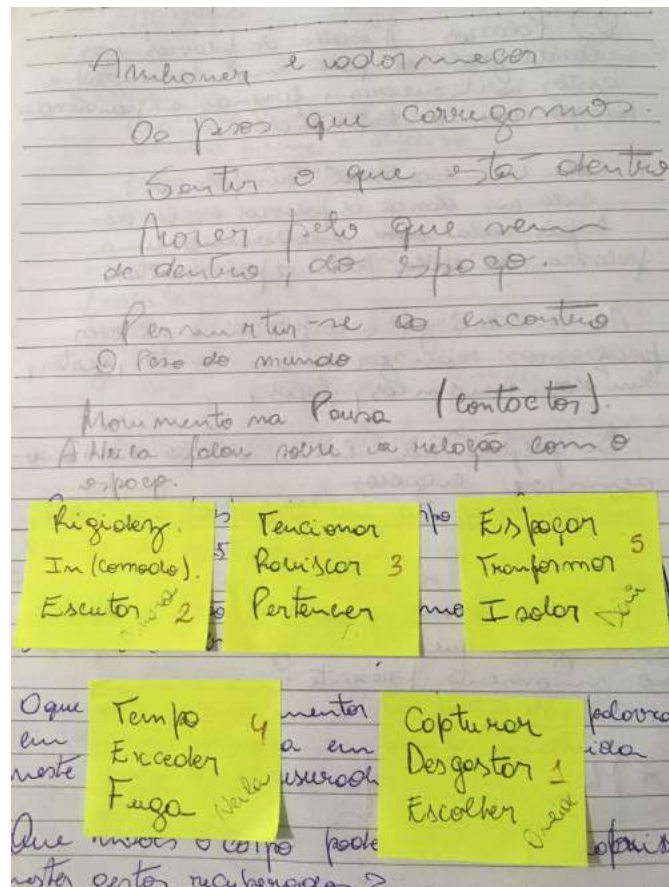 e adormecer
Os pesos que carregamos.
Sentir o que está dentro
Mover pelo que vem
de dentro, do espaço.
Permitir-se ao encontro
O Peso do mundo
Movimento na Pausa (contactos).
A Neila falou sobre a relação com o
espaço.
Rigidez.
In (comodo).
Escutar 2
Tencionar
Rabiscar 3
Pertencer
Espaçar
Tranformar 5
Isolar
Tempo 4
Exceder
Fuga Neila
Capturar
Desgastar 1
Escolher
O que mentos palavra
em a em
neste
Que o corpo pode
nestes gestos recuperados?